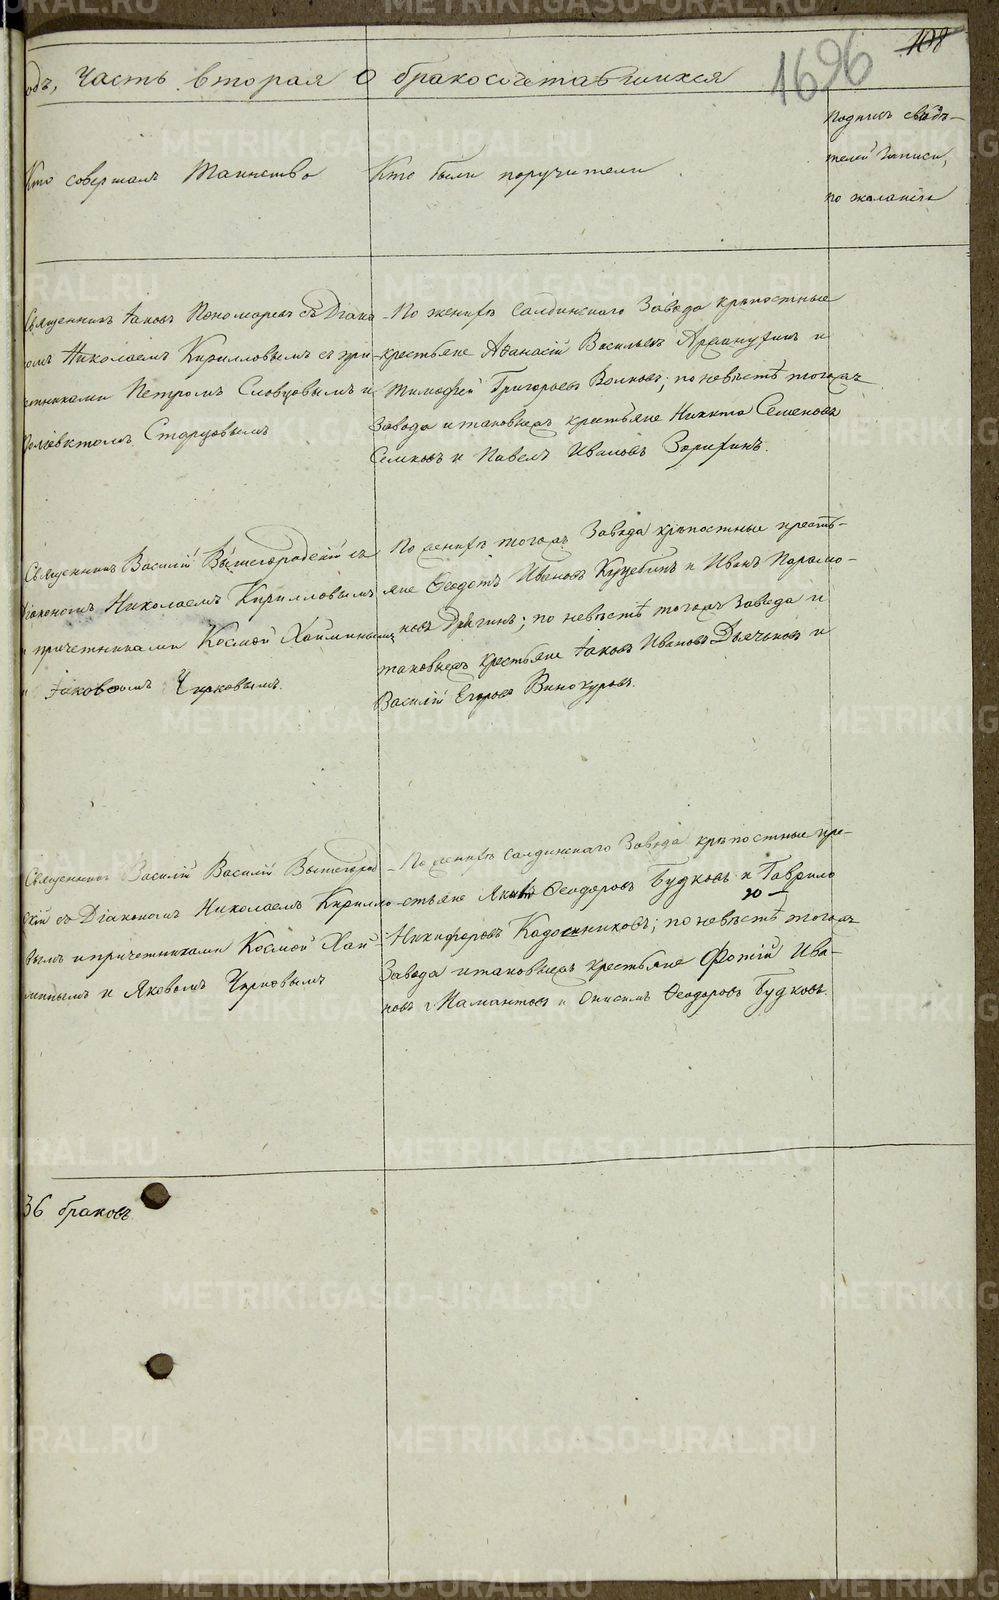 одъ, Часть вторая о бракосочетавшихся
1696
108
Кто совершалъ Таинство
Кто были поручители
Подпись свидѣ-
телей записи,
по желанію
Священникъ Іаковъ Пономаревъ съ Діако-
номъ Николаемъ Кирилловымъ съ при-
четниками Петромъ Словцовымъ и
Поліевктомъ Старцовымъ
По женихѣ Салдинскаго Завода крѣпостные
крестьяне Аѳанасій Васильевъ и
Тимофей Григорьевъ Волковъ; по невѣстѣ тогожъ
Завода и таковыежъ крестьяне Никита Семеновъ
Семковъ и Павелъ Ивановъ Зорихинъ.
Священникъ Василій Вышегородскій съ
Діакономъ Николаемъ Кирилловымъ
и причетниками Космой Хайминымъ
и Іаковомъ Чирковымъ.
По женихѣ тогожъ Завода крѣпостные кресть-
яне Ѳеодотъ Ивановъ и Иванъ Парамо-
новъ Дрягинъ; по невѣстѣ тогожъ Завода и
таковыежъ крестьяне Іаковъ Ивановъ Дьячковъ и
Василій Егоровъ Винокуровъ.
Священникъ Василій Василій Вышегород-
скій съ Діакономъ Николаемъ Кирилло-
вымъ и причетниками Космой Хай-
минымъ и Яковомъ Чирковымъ
По женихѣ Салдинскаго Завода крѣпостные кре-
стьяне Яковъ Ѳеодоровъ Будковъ и Гаврило
Никифоровъ Кадочниковъ; по невѣстѣ тогожъ
Завода и таковыежъ крестьяне Фотій Ива-
новъ Мамонтовъ и Онисимъ Ѳеодоровъ Будковъ.
36 браковъ
METRIKI.GASO-URAL.RU